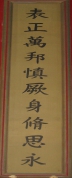 表正萬邦慎厥身脩思永